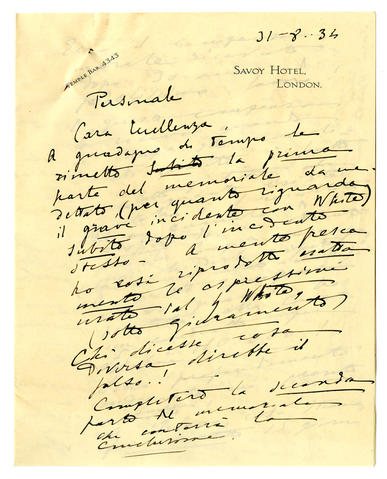 31-8-34
TEMPLE BAR. 4343
SAVOY HOTEL,
LONDON.
Personale
Cara Eccellenza,
A guadagno di tempo le
rimetto subito la prima
parte del memoriale da me
dettato (per quanto riguarda
il grave incidente con White)
subito dopo l'incidente
stesso - A mente fresca
ho così riprodotto esatta
mente le espressioni
usate dal White,
(sotto giuramento)
Chi dicesse cosa
diversa direbbe il
falso..!
Completerò la seconda
parte del memoriale
che conterrà la
conclusione.